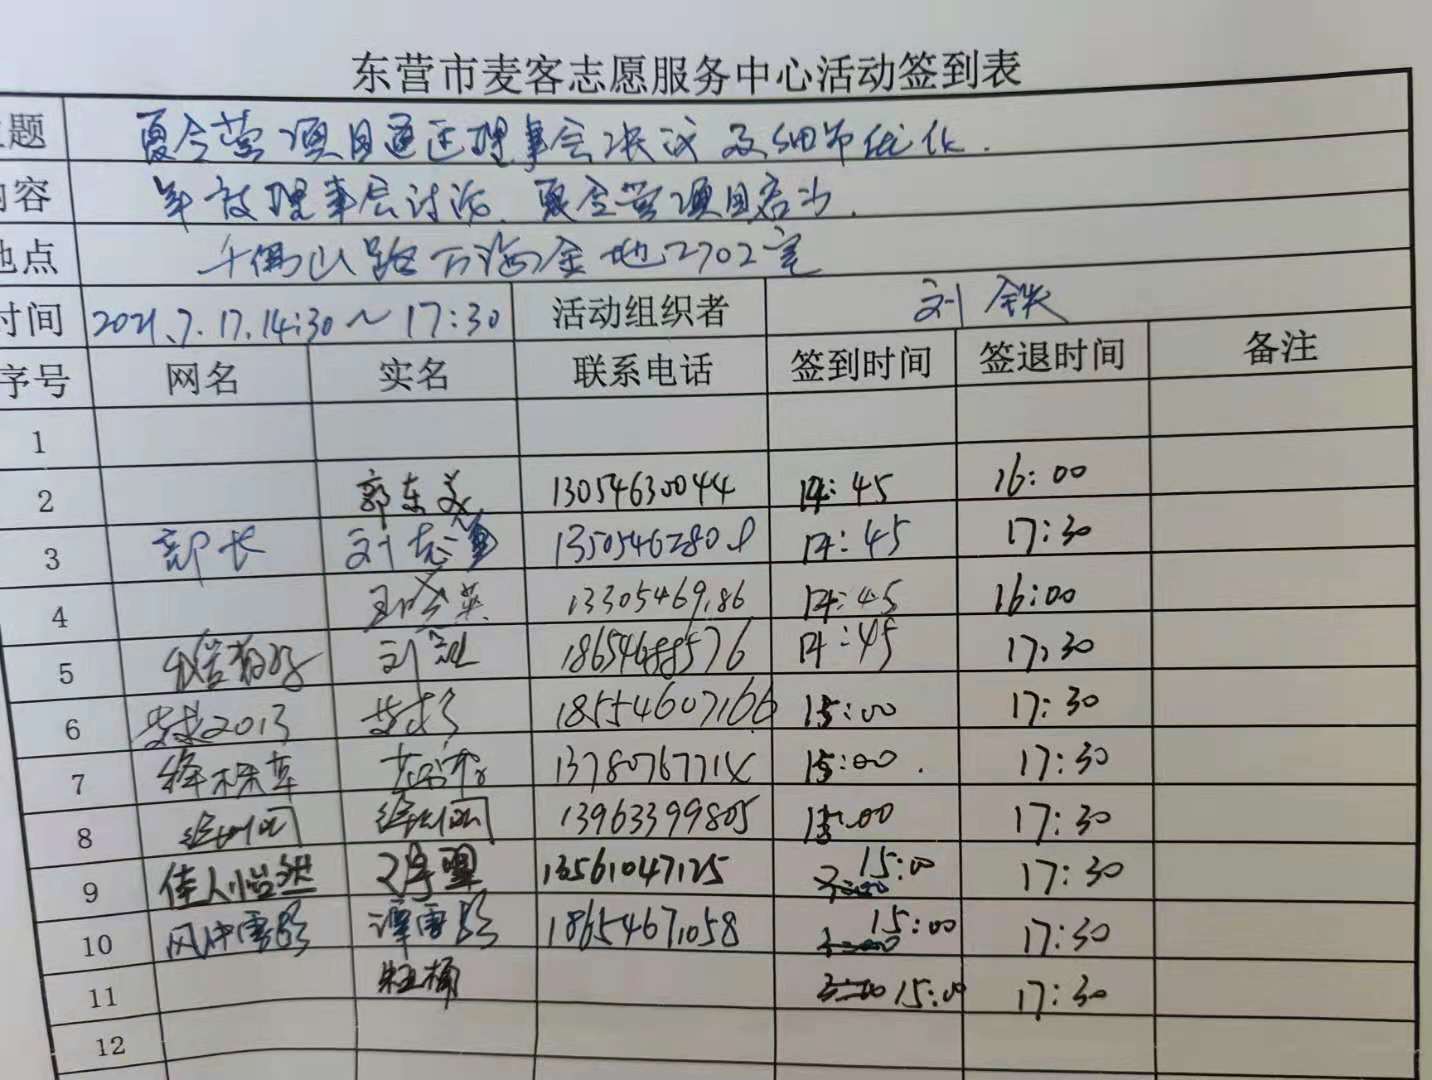 东营市麦客志愿服务中心活动签到表
题 夏令营项目通过理事会决议及细节优化.
内容 年度理事会讨论、夏令营项目启动.
地点 千佛山路万海金地2702室
时间 2021.7.17.14:30～17:30 活动组织者 刘铁
序号 网名 实名 联系电话 签到时间 签退时间 备注
1
2 郭东美 13054630044 14:45 16:00
3 部长 刘志 13505462808 14:45 17:30
4 王 英 14:45 16:00
5 刘 18654688576 14:45 17:30
6 2013 18554607166 15:00 17:30
7 绛珠草 1378076771 15:00 17:30
8 13963399805 15:00 17:30
9 佳人怡然 13561047125 15:00 17:30
10 风中雪影 谭雪影 18654671058 15:00 17:30
11 15:00 17:30
12